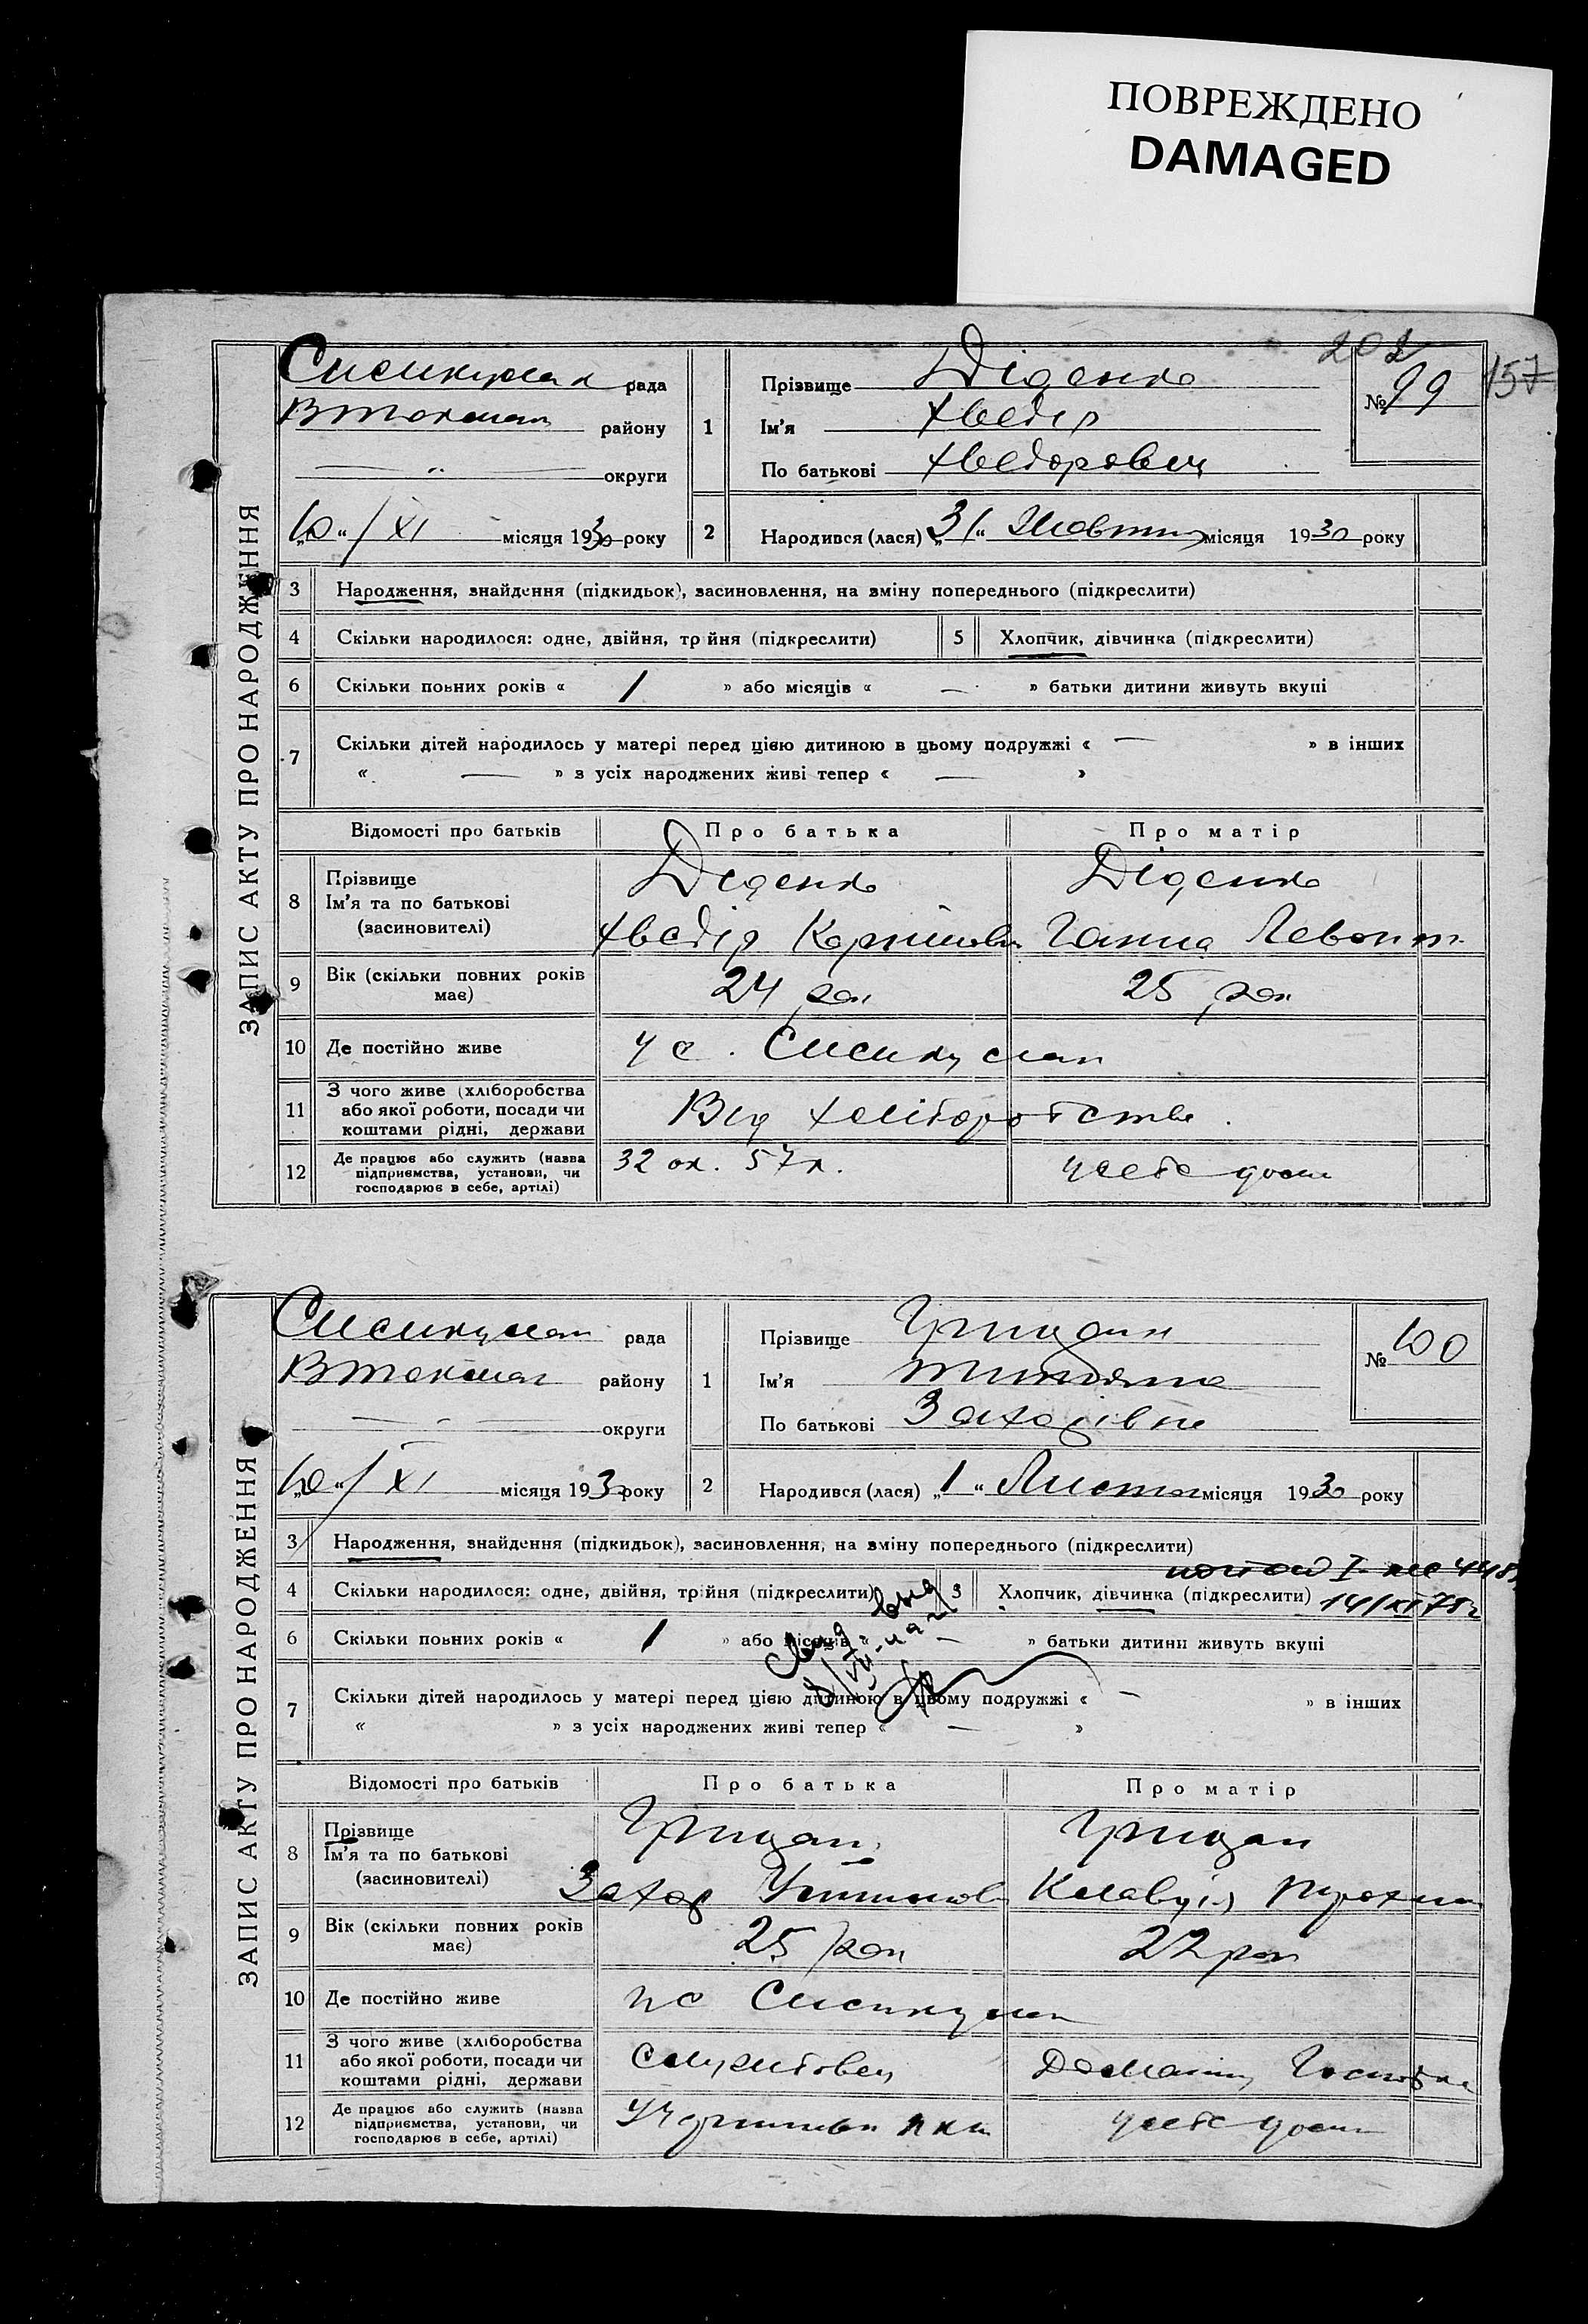 ПОВРЕЖДЕНО
DAMAGED
202
157
ЗАПИС АКТУ ПРО НАРОДЖЕННЯ
рада
району
округи
10 / XI місяця 1930 року
1
Прізвище Діденко
Ім'я Хведір
По батькові Хведорович
№ 99
2 Народився (лася) „31“ Жовтня місяця 1930 року
3 Народження, знайдення (підкидьок), засиновлення, на зміну попереднього (підкреслити)
4 Скільки народилося: одне, двійня, трійня (підкреслити)
5 Хлопчик, дівчинка (підкреслити)
6 Скільки повних років « 1 » або місяців « — » батьки дитини живуть вкупі
7 Скільки дітей народилось у матері перед цією дитиною в цьому подружжі « — » в інших
« — » з усіх народжених живі тепер « — »
Відомості про батьків
Про батька
Про матір
8 Прізвище
Ім'я та по батькові
(засиновителі)
Діденко
Хведір
Діденко
Ганна Левонт.
9 Вік (скільки повних років
має)
24 рок
25 рок
10 Де постійно живе
у с.
11 З чого живе (хліборобства
або якої роботи, посади чи
коштами рідні, держави
Від хліборобства
12 Де працює або служить (назва
підприємства, установи, чи
господарює в себе, артілі)
32 ок. 57 к.
у себе дома
ЗАПИС АКТУ ПРО НАРОДЖЕННЯ
рада
району
округи
10 / XI місяця 1930 року
1
Прізвище Грицан
Ім'я
По батькові Захарівна
№ 100
2 Народився (лася) „1“ Листоп місяця 1930 року
3 Народження, знайдення (підкидьок), засиновлення, на зміну попереднього (підкреслити)
4 Скільки народилося: одне, двійня, трійня (підкреслити)
5 Хлопчик, дівчинка (підкреслити)
14/XI 78г
6 Скільки повних років « 1 » або місяців « — » батьки дитини живуть вкупі
7 Скільки дітей народилось у матері перед цією дитиною в цьому подружжі « — » в інших
« » з усіх народжених живі тепер « — »
Відомості про батьків
Про батька
Про матір
8 Прізвище
Ім'я та по батькові
(засиновителі)
Грицан
Захар
Грицан
Клавдія
9 Вік (скільки повних років
має)
25 рок
22 рок
10 Де постійно живе
11 З чого живе (хліборобства
або якої роботи, посади чи
коштами рідні, держави
Службовец
Домашня Господар
12 Де працює або служить (назва
підприємства, установи, чи
господарює в себе, артілі)
у себе дома